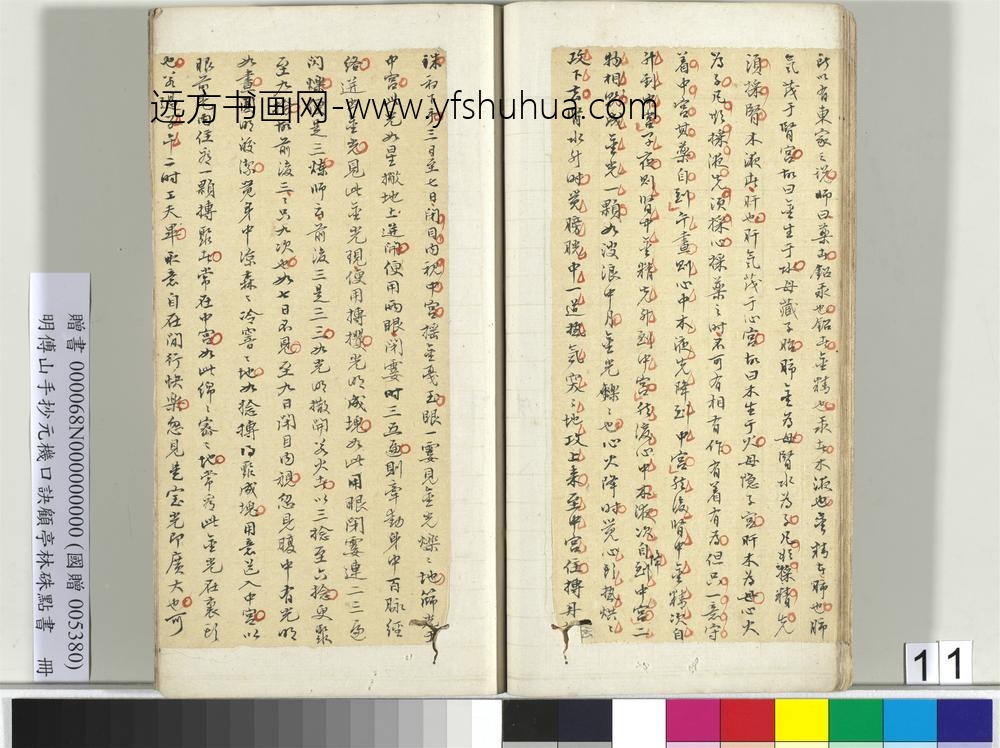 所以有東家之說師曰藥出鉛汞也鉛出金精也汞者木液也金精者肺也肺
氣茂于腎宮故曰金生于水母藏子胎肺金為母腎水為子凡欲採精先
須採腎木液者肝也肝氣茂于心宮故曰木生于火母隱子宮肝木為母心火
為子凡欲採液先須採心採藥之時不可有相有作有着有為但只一意守
着中宮其藥自到午晝則心中木液先降到中宮然後腎中金精次自
升到中宮子夜則腎中金精先升到中宮然後心中木液次自到中宮二
物相 成金光一顆如波浪中月金光爍爍也心火降時覺心頭熱烘烘
攻下去腎水升時覺膀胱中一道熱氣突突地攻上來至中宮住搏丹
珠初下手三日至七日閉目內視中宮 金戛玉眼一霎見金光爍爍地
中宮 光如星撒地上 閉便用兩眼閉霎時三五遍則牽動身中百脉經
絡 金光見此金光現便用搏攪光明成塊如此用眼閉霎連二三遍
閃爍 是三煉師云前後三是三三如光明撒開若火 以三捻至六捻更聚
至九 故前後三三只九次也如七日不見至九日閉目內視忽見腹中有光明
如晝 明皎潔覺身中涼森森冷窨窨地如捻搏得聚成塊用意送入中宮以
眼前 住看一顆搏聚 常在中宮如此綿綿密密地常看此金光在裏頭
也若是子午二時工夫畢 意自在閒行快樂忽見 室光即廣大也可
远方书画网-www.yfshuhua.com
贈書 000068N000000000 (國贈 005380)
明傅山手抄元機口訣顧亭林硃點書 冊
11